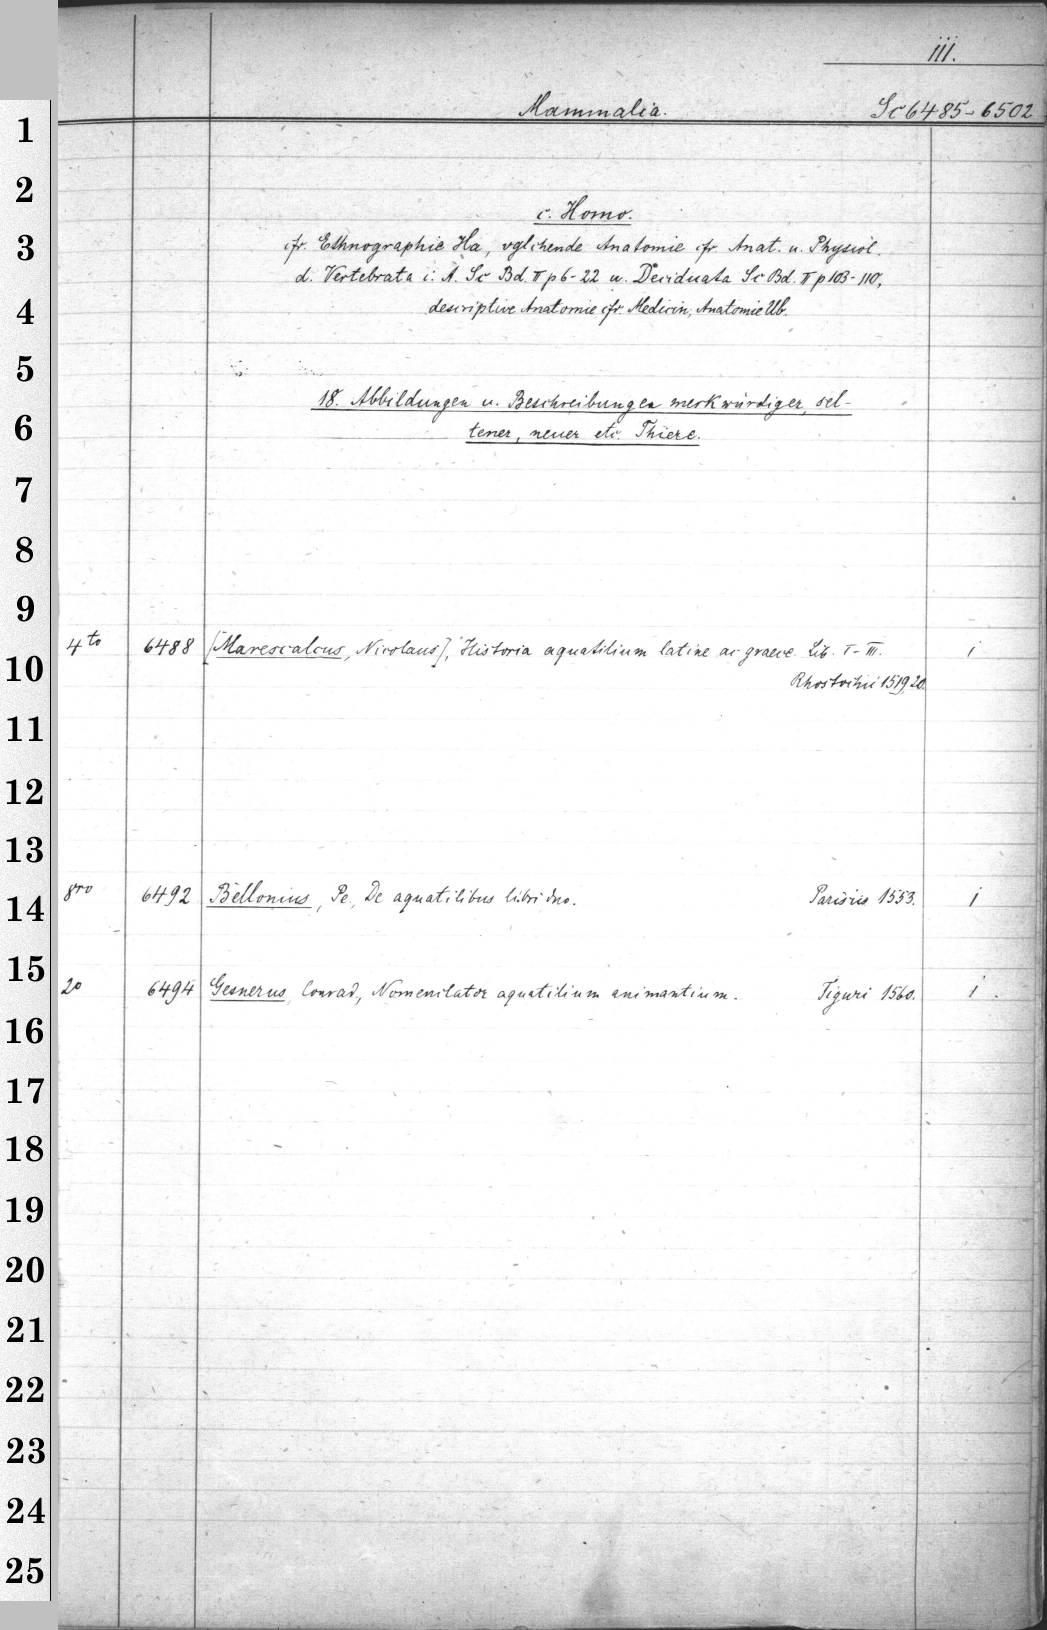 111.
Mammalia. Sc 6485-6502
c. Homo.
cfr. Ethnographie Ha, vglchende Anatomie cfr. Anat. u. Physiol.
d. Vertebrata i. A. Sc Bd. II p 6-22 u. Deciduata Sc Bd. II p 103-110,
descriptive Anatomie cfr. Medicin, Anatomie Ub.
18. Abbildungen u. Beschreibungen merkwürdiger, sel-
tener, neuer etc. Thiere.
4to 6488 [Marescalcus, Nicolaus], Historia aquatilium latine ac graece. Lib. I-III. 1
Rhostochii 1519,20.
8vo 6492 Bellonius, Pe., De aquatilibus libri duo. Parisiis 1553. 1
20 6494 Gesnerus, Conrad, Nomenclator aquatilium animantium. Tiguri 1560. 1
1
2
3
4
5
6
7
8
9
10
11
12
13
14
15
16
17
18
19
20
21
22
23
24
25